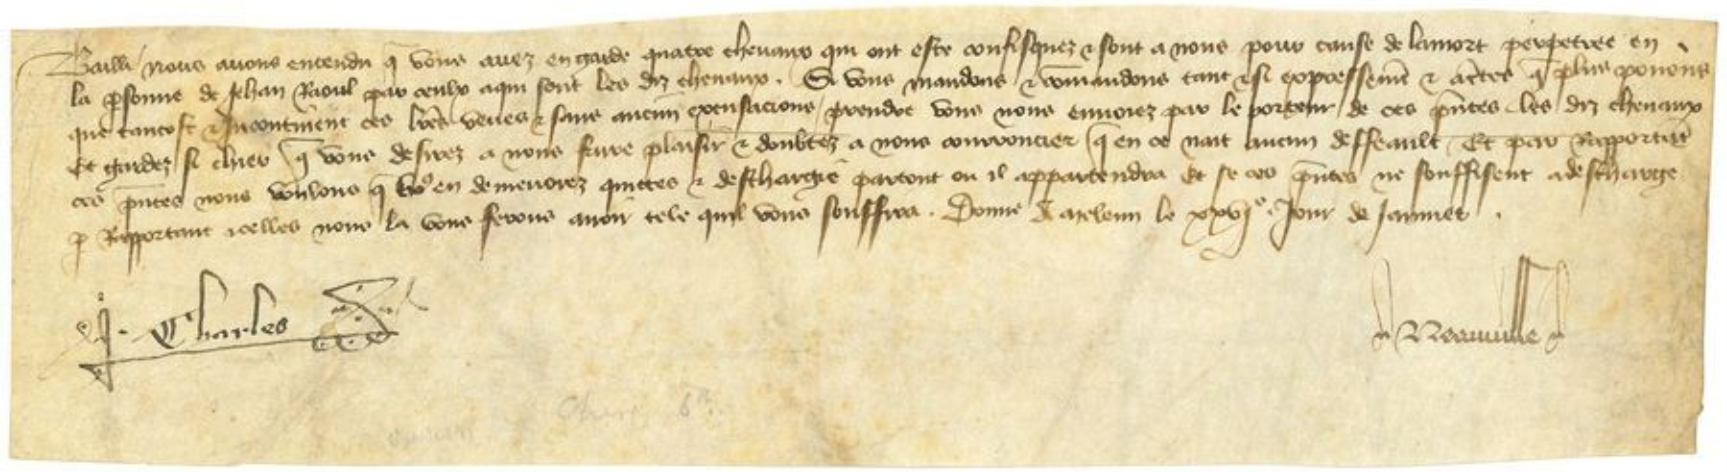 Bailli nous avons entendu q̃ vous avez en garde quatre chevaux qui ont este confisquez & sont a nous pour cause de lamort perpetree en
la p̃sonne de Jehan Raoul par ceulx aqui sont les diz chevaux. Si vous mandons & cõmandons tant & si expressemẽt & acertes q̃ plus povons
que tantost & Incontinent ces lr̃es veues & sans aucun excusacions prendre vous nous envoiez par le porteur de ces p̃ntes les diz chevaux
Et gardez si chier q̃ vous desirez a nous faire plaisir & doubtez a nous courroncier q̃ en ce nait aucun deffault Et par Rapportãt
ces p̃ntes nous voulons q̃ vo9 en demeurez quictes & deschargie partout ou il appartendra Et se ces p̃ntes ne souffisent adescharge
p Rapportant icelles nous la vous ferons avoir tele quil vous souffira. Donne le xxvj.e Jour de Janvier.
Charles